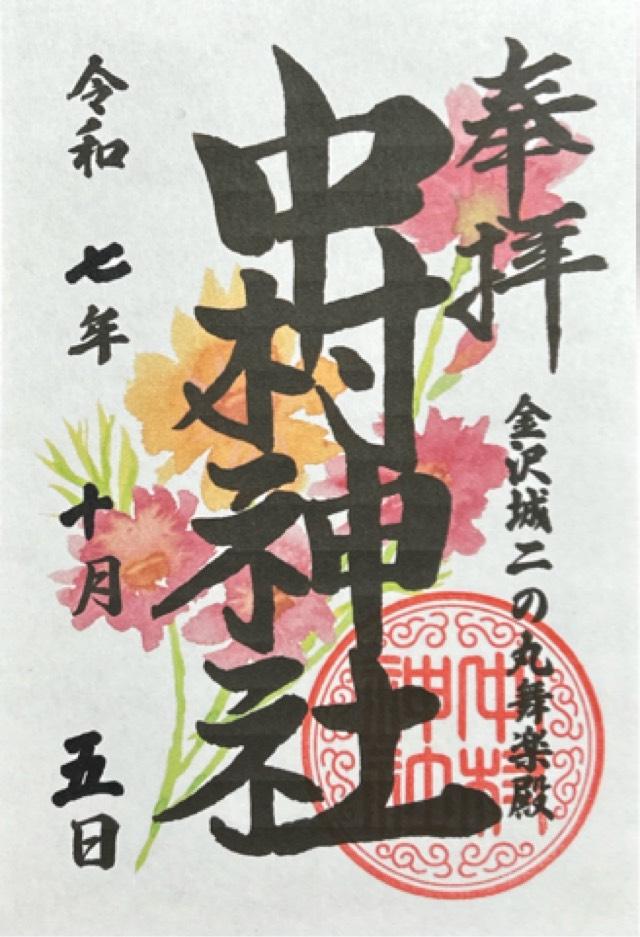 奉拝
金沢城二の丸舞楽殿
中村神社
中村
神社
令和七年十月五日